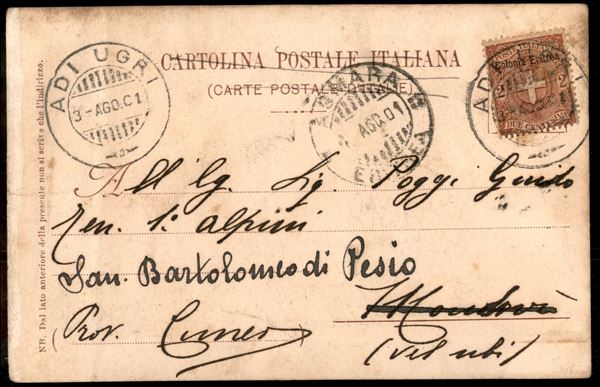 CARTOLINA POSTALE ITALIANA
(CARTE POSTALE D'ITALIE)
ADI UGRI
3-AGO.01
ASMARA
AGO 01
ERITREA
ADI UGRI
Colonia Eritrea
2 2
DUE CENTESIMI
NB. Dal lato anteriore della presente non si scrive che l'indirizzo.
All Sig. Poggi Guido
Ten. 1° Alpini
San. Bartolomeo di Pesio
(Prov. Cuneo)
Mondovì
(vel ubi)